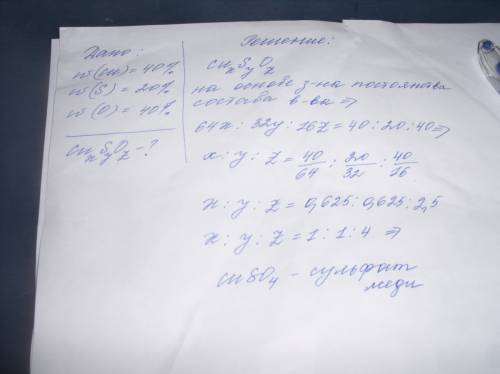 Дано:
w(Cu)=40%
w(S)=20%
w(O)=40%
CuxSyOz-?
Решение:
CuxSyOz
на основе з-на постоянства
состава в-ва =>
64x:32y:16z=40:20:40=>
x:y:z=40/64:20/32:40/16
x:y:z=0,625:0,625:2,5
x:y:z=1:1:4 =>
CuSO4 - сульфат
меди